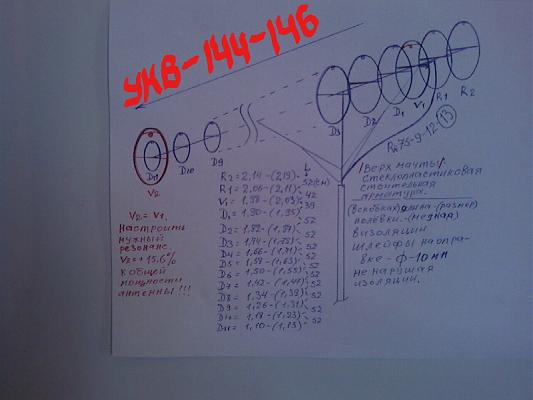 УКВ-144-146
R2
R1
V1
D1
D2
D3
Rк 75-9-12 (13)
D9
D10
D11
V2
V2 = V1
Настроить
нужный
резонанс.
V2 = + 15,6%
к общей
мощности
антенны!!!
L
R2 = 2,14-(2,19)
52(см)
R1 = 2,06-(2,11)
42
V1 = 1,98-(2,03)
39
D1 = 1,90-(1,95)
52
D2 = 1,82-(1,87)
52
D3 = 1,74-(1,79)
52
D4 = 1,66-(1,71)
52
D5 = 1,58-(1,63)
52
D6 = 1,50-(1,55)
52
D7 = 1,42-(1,47)
52
D8 = 1,34-(1,39)
52
D9 = 1,26-(1,31)
52
D10 = 1,18-(1,23)
52
D11 = 1,10-(1,15)
/Верх мачты/:
стеклопластиковая
строительная
арматура.
(в скобках) длина-(размер)
полёвки.-(медная)
в изоляции
шлейфы на опра-
вке - ф-10мм
не нарушая
изоляции.